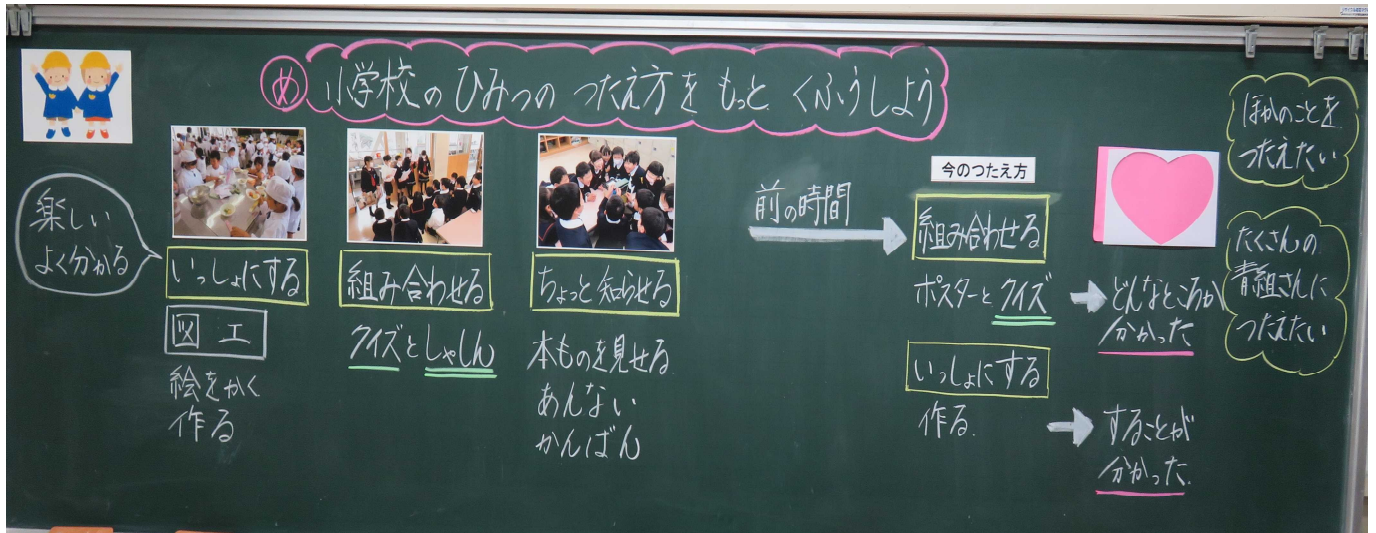 め 小学校の ひみつの つたえ方を もっと くふうしよう
楽しい
よく分かる
いっしょにする
図工
絵をかく
作る
組み合わせる
クイズとしゃしん
ちょっと知らせる
本ものを見せる
あんない
かんばん
前の時間
今のつたえ方
組み合わせる
ポスターとクイズ
どんなところか
分かった
いっしょにする
作る
することが
分かった
ほかのことを
つたえたい
たくさんの
青組さんに
つたえたい